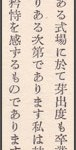 ある式場に於て芽出度も卒業
りある次第であります私は
矜恃を感ずるものでありま